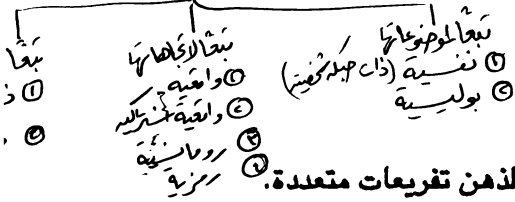 تبعًا لموضوعاتها
① نفسية (ذات حبكة شخصية)
② بوليسية
تبعًا لاتجاهاتها
① واقعية
② واقعية اشتراكية
③ رومانسية
④ رمزية
تبعًا
①
②
لذهن تفريعات متعددة.